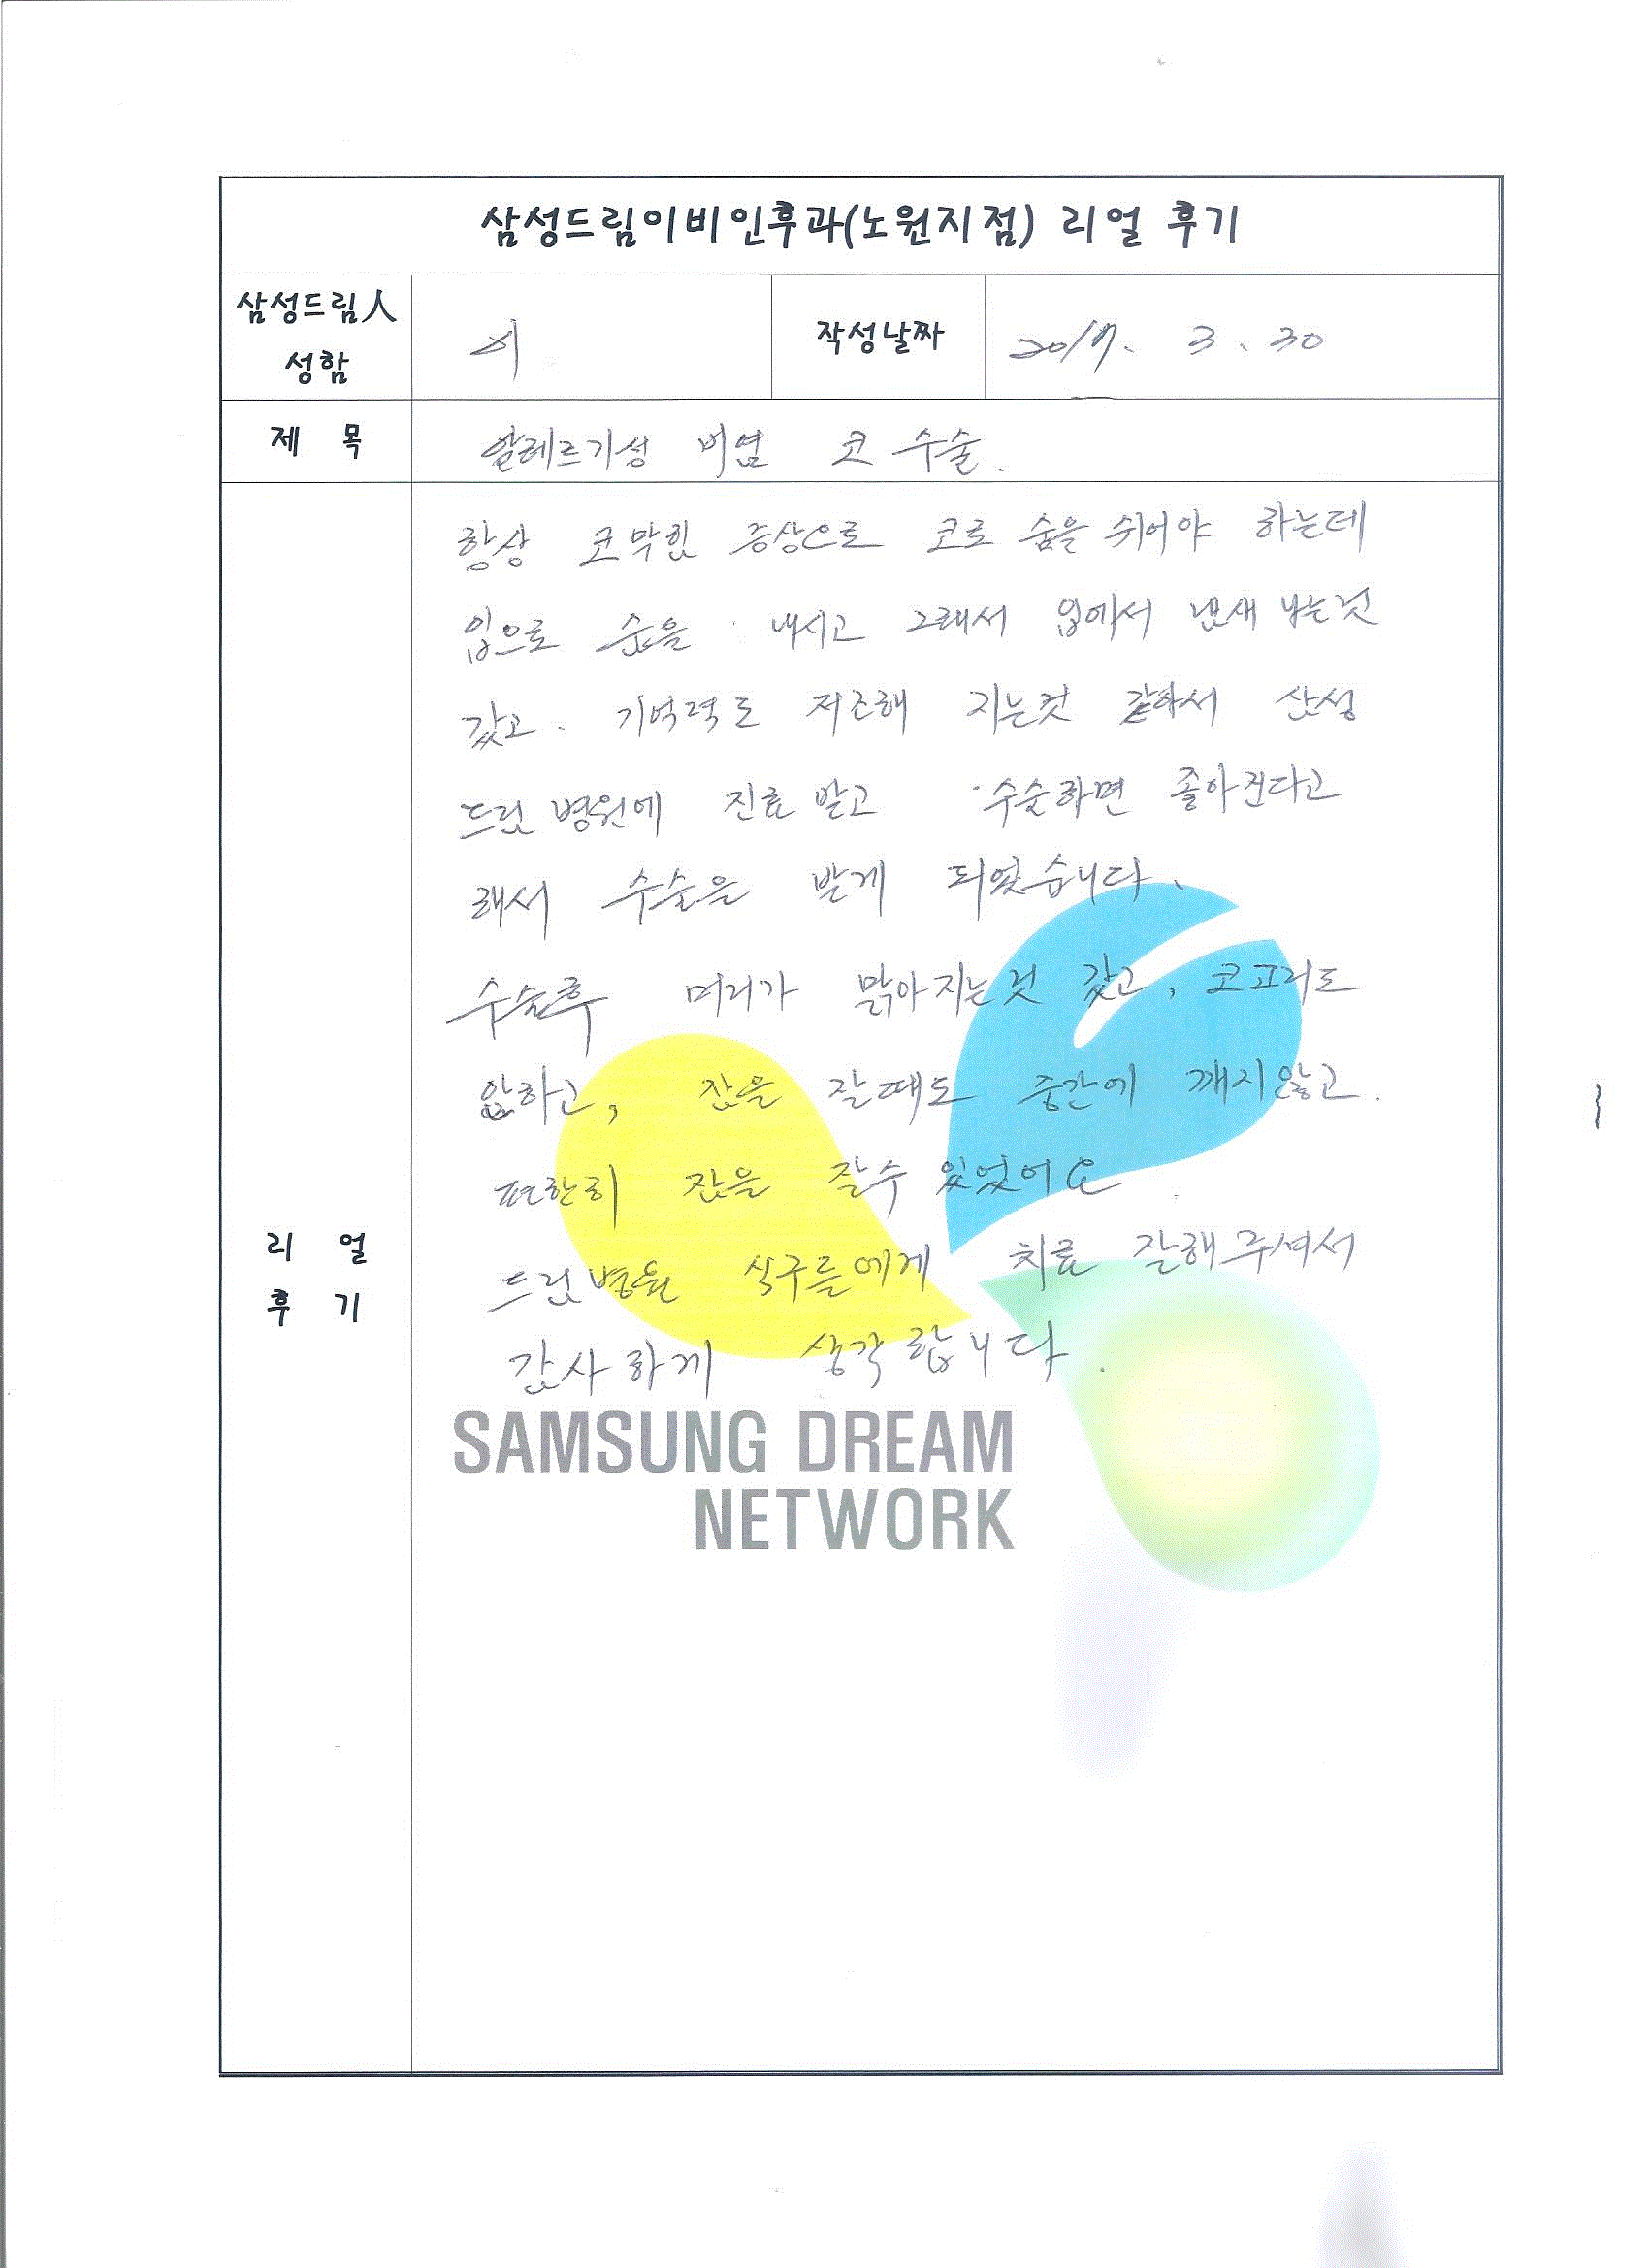 삼성드림이비인후과(노원지점) 리얼 후기
삼성드림人
성함
작성날짜 2017. 3. 30
제 목 알레르기성 비염 코 수술.
항상 코막힘 증상으로 코로 숨을 쉬어야 하는데
입으로 숨을 내시고 그래서 입에서 냄새 나는것
갔고. 기억력도 저조해 지는것 같아서 삼성
드림 병원에 진료 받고 수술하면 좋아진다고
해서 수술을 받게 되었습니다.
수술후 머리가 맑아지는것 갔고, 코고리도
안하고, 잠을 잘때도 중간에 깨지않고.
편한히 잠을 잘수 있었어요
드림병원 식구들에게 치료 잘해주셔서
감사하게 생각합니다.
리 얼
후 기
SAMSUNG DREAM
NETWORK